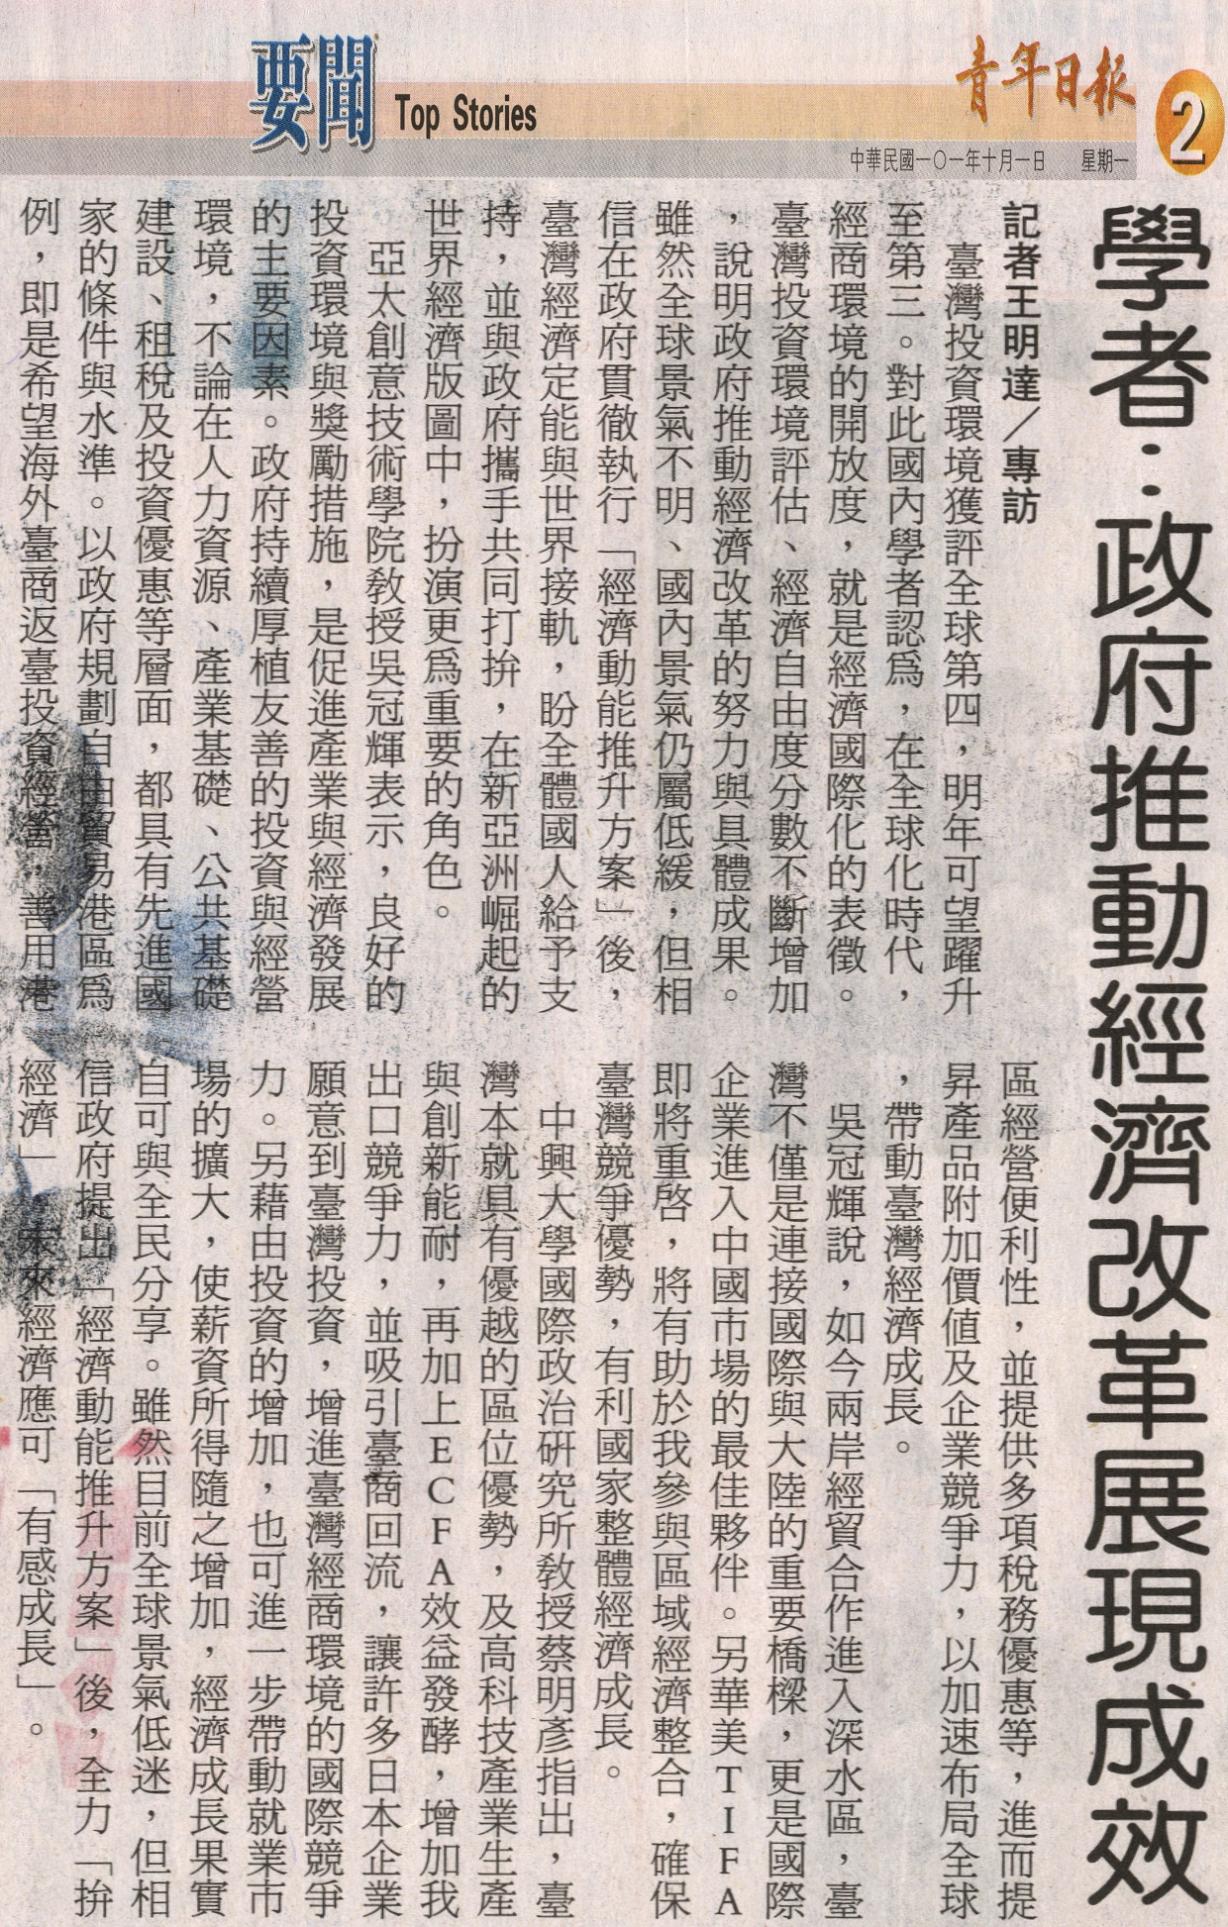 要聞 Top Stories
青年日報
2
中華民國一〇一年十月一日　星期一
學者：政府推動經濟改革展現成效
記者王明達／專訪
臺灣投資環境獲評全球第四，明年可望躍升
至第三。對此國內學者認為，在全球化時代，
經商環境的開放度，就是經濟國際化的表徵。
臺灣投資環境評估、經濟自由度分數不斷增加
，說明政府推動經濟改革的努力與具體成果。
雖然全球景氣不明、國內景氣仍屬低緩，但相
信在政府貫徹執行「經濟動能推升方案」後，
臺灣經濟定能與世界接軌，盼全體國人給予支
持，並與政府攜手共同打拚，在新亞洲崛起的
世界經濟版圖中，扮演更為重要的角色。
亞太創意技術學院教授吳冠輝表示，良好的
投資環境與獎勵措施，是促進產業與經濟發展
的主要因素。政府持續厚植友善的投資與經營
環境，不論在人力資源、產業基礎、公共基礎
建設、租稅及投資優惠等層面，都具有先進國
家的條件與水準。以政府規劃自由貿易港區為
例，即是希望海外臺商返臺投資經營，善用港
區經營便利性，並提供多項稅務優惠等，進而提
昇產品附加價值及企業競爭力，以加速布局全球
，帶動臺灣經濟成長。
吳冠輝說，如今兩岸經貿合作進入深水區，臺
灣不僅是連接國際與大陸的重要橋樑，更是國際
企業進入中國市場的最佳夥伴。另華美TIFA
即將重啓，將有助於我參與區域經濟整合，確保
臺灣競爭優勢，有利國家整體經濟成長。
中興大學國際政治研究所教授蔡明彥指出，臺
灣本就具有優越的區位優勢，及高科技產業生產
與創新能耐，再加上ECFA效益發酵，增加我
出口競爭力，並吸引臺商回流，讓許多日本企業
願意到臺灣投資，增進臺灣經商環境的國際競爭
力。另藉由投資的增加，也可進一步帶動就業市
場的擴大，使薪資所得隨之增加，經濟成長果實
自可與全民分享。雖然目前全球景氣低迷，但相
信政府提出「經濟動能推升方案」後，全力「拚
經濟」，未來經濟應可「有感成長」。